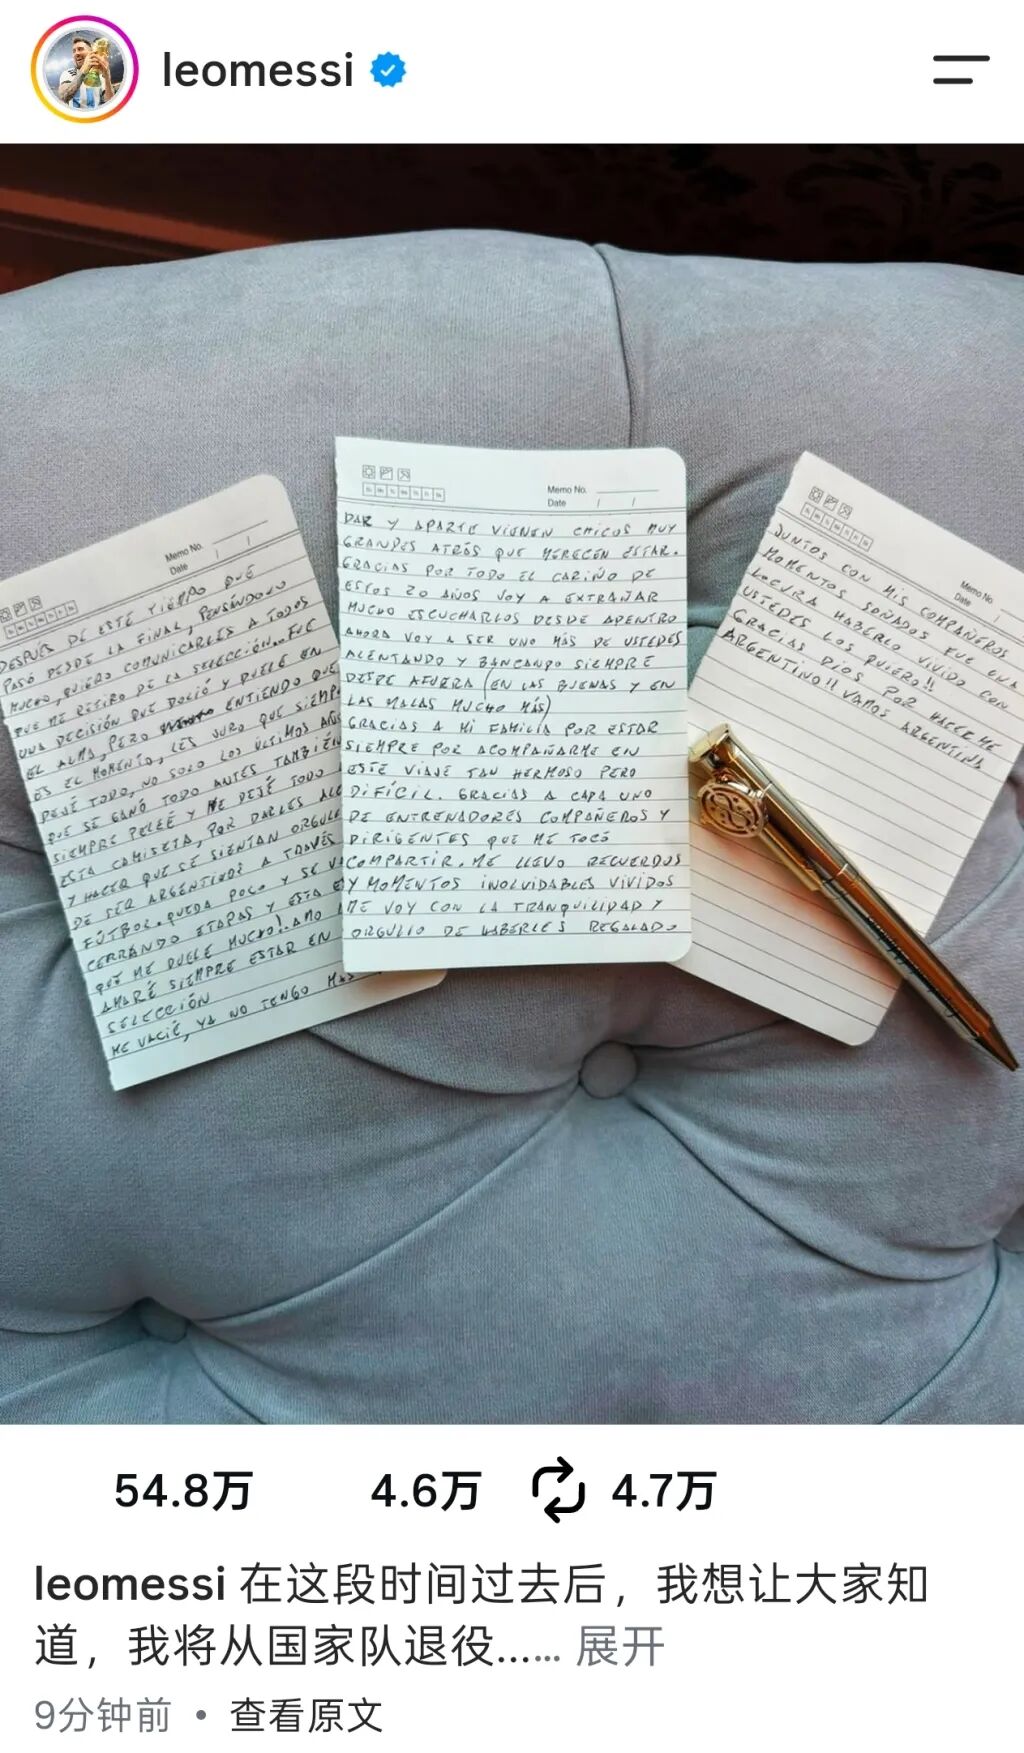 leomessi
Memo No.
Date / /
DESPUÉS DE ESTE TIEMPO QUE
PASÓ DESDE LA FINAL, PENSÁNDOLO
MUCHO, QUIERO COMUNICARLES A TODOS
QUE ME RETIRO DE LA SELECCIÓN.. FUE
UNA DECISIÓN QUE DOLIÓ Y DUELE EN
EL ALMA, PERO ENTIENDO QUE
ES EL MOMENTO, LES JURO QUE SIEMP
DEJÉ TODO, NO SOLO LOS ÚLTIMOS AÑ
QUE SE GANÓ TODO ANTES TAMBIÉN
SIEMPRE PELEÉ Y ME DEJÉ TODO
ESTA CAMISETA, POR DARLES ALE
Y HACER QUE SE SIENTAN ORGULL
DE SER ARGENTINOS A TRAVÉS
FÚTBOL. QUEDA POCO Y SE VA
CERRANDO ETAPAS Y ESTA E
QUE ME DUELE MUCHO! AMO
AMARÉ SIEMPRE ESTAR EN
SELECCIÓN
ME VACIÉ, YA NO TENGO MAS
Memo No.
Date / /
DAR Y APARTE VIENEN CHICOS MUY
GRANDES ATRÁS QUE MERECEN ESTAR.
GRACIAS POR TODO EL CARIÑO DE
ESTOS 20 AÑOS VOY A EXTRAÑAR
MUCHO ESCUCHARLOS DESDE ADENTRO
AHORA VOY A SER UNO MÁS DE USTEDES
ALENTANDO Y BANCANDO SIEMPRE
DESDE AFUERA (EN LAS BUENAS Y EN
LAS MALAS MUCHO MÁS)
GRACIAS A MI FAMILIA POR ESTAR
SIEMPRE POR ACOMPAÑARME EN
ESTE VIAJE TAN HERMOSO PERO
DIFÍCIL. GRACIAS A CADA UNO
DE ENTRENADORES COMPAÑEROS Y
DIRIGENTES QUE ME TOCÓ
COMPARTIR. ME LLEVO RECUERDOS
Y MOMENTOS INOLVIDABLES VIVIDOS
ME VOY CON LA TRANQUILIDAD Y
ORGULLO DE HABERLES REGALADO
Memo No.
Date /
JUNTOS CON MIS COMPAÑEROS
MOMENTOS SOÑADOS FUE UNA
LOCURA HABERLO VIVIDO CON
USTEDES LOS QUIERO!!
GRACIAS DIOS POR HACERME
ARGENTINO!! VAMOS ARGENTINA
54.8万 4.6万 4.7万
leomessi 在这段时间过去后，我想让大家知
道，我将从国家队退役...... 展开
9分钟前 • 查看原文